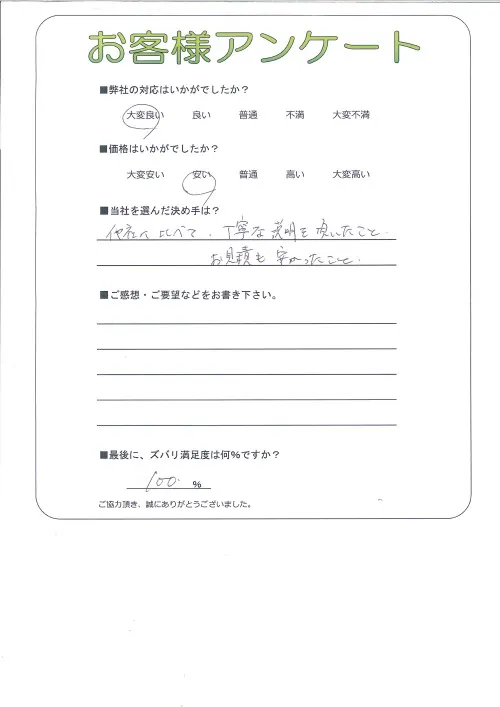 お客様アンケート
■弊社の対応はいかがでしたか？
大変良い 良い 普通 不満 大変不満
■価格はいかがでしたか？
大変安い 安い 普通 高い 大変高い
■当社を選んだ決め手は？
他社に比べて、丁寧な説明を頂いたこと。
お見積も安かったこと。
■ご感想・ご要望などをお書き下さい。
■最後に、ズバリ満足度は何%ですか？
100 %
ご協力頂き、誠にありがとうございました。